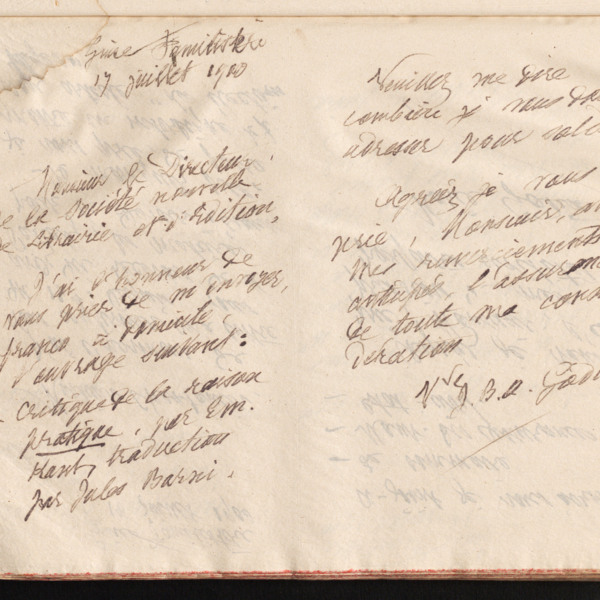 Guise Familistère
17 juillet 1900
Monsieur le Directeur
de la Société nouvelle
de librairie et d'édition,
J'ai l'honneur de
vous prier de m'envoyer,
franco à domicile,
l'ouvrage suivant:
critique de la raison
pratique, par Em.
Kant, traduction
par Jules Barni.
Veuillez me dire
combien je vous dois
adresser pour solde
Agréez je vous
prie, Monsieur, avec
mes remerciements
anticipés, l'assurance
de toute ma consi
dération
Vve J. B. A. Godin